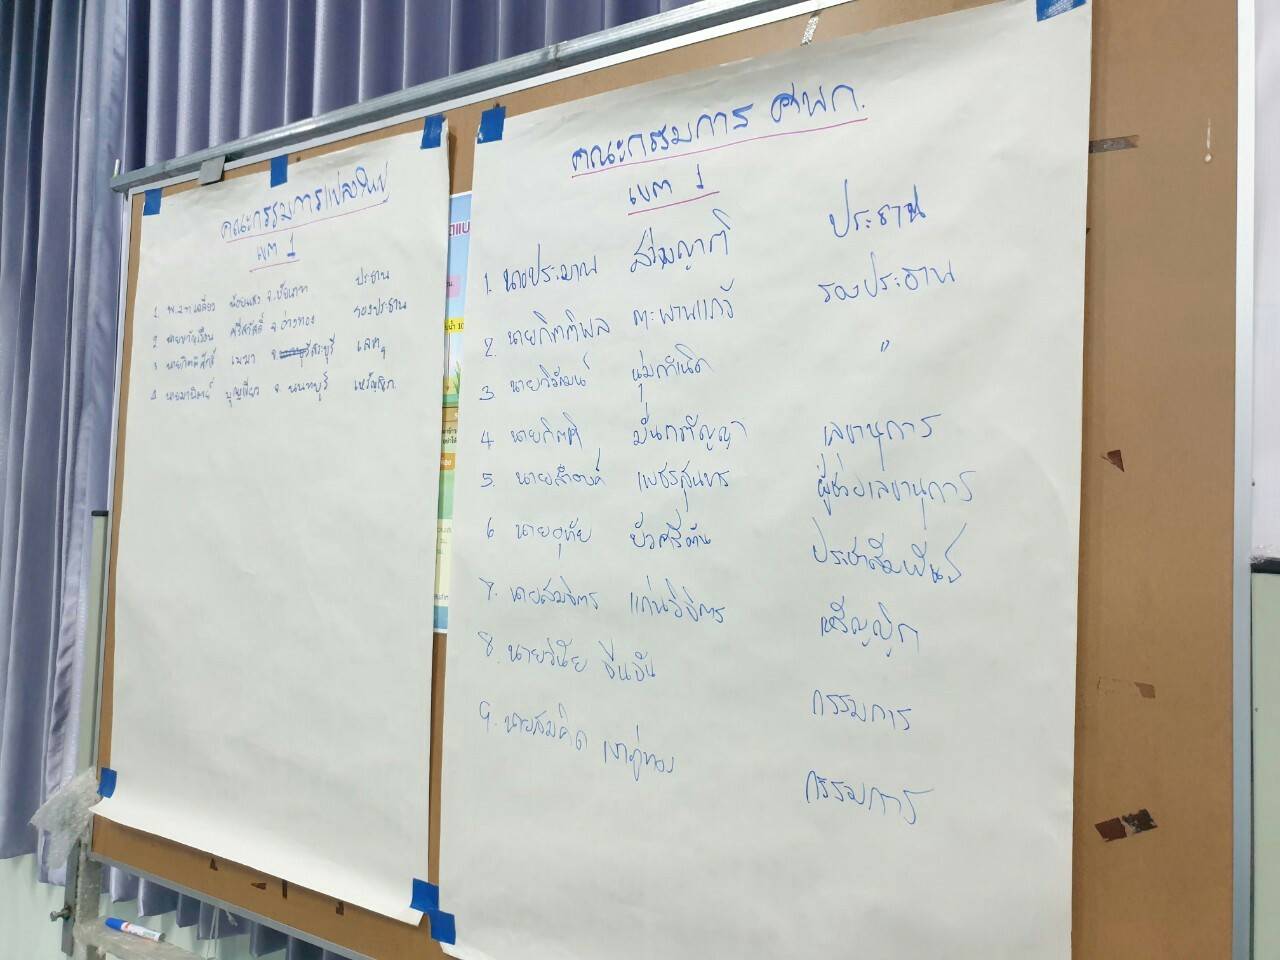 คณะกรรมการแปลงใหญ่
เขต 1
1. พ.อ.ท.เฉลียว น้อยแสง จ.ชัยนาท ประธาน
2 นายขวัญเรือน ศรีสวัสดิ์ จ.อ่างทอง รองประธาน
3 นายกิตติศักดิ์ เมฆา จ. สระบุรี เลขาฯ
4 นายมานิตย์ บุญเขียว จ. นนทบุรี เหรัญญิก.
คณะกรรมการ ศพก.
เขต 1
1. นายประมาณ สว่างญาติ ประธาน
2. นายกิตติพล ตะพานแก้ว รองประธาน
3 นายวิวัฒน์ นุ่มกำเนิด "
4 นายกิตติ มั่นกตัญญู เลขานุการ
5. นายสำองค์ เพชรสุนทร ผู้ช่วยเลขานุการ
6 นายอุทัย บัวศรีตัน ประชาสัมพันธ์
7. นายสมจิตร แก่นวิจิตร เหรัญญิก
8. นายวินัย จีนจัน กรรมการ
9. นายสมคิด เงาภู่ทอง กรรมการ